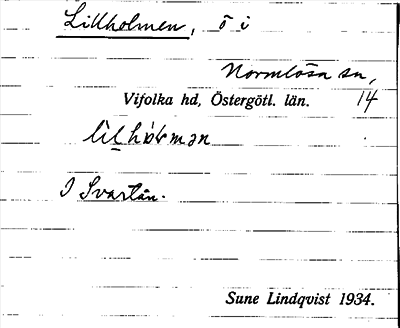 Lillholmen, ö i
Normlösa sn,
Vifolka hd, Östergötl. län. 14
I Svartån.
Sune Lindqvist 1934.